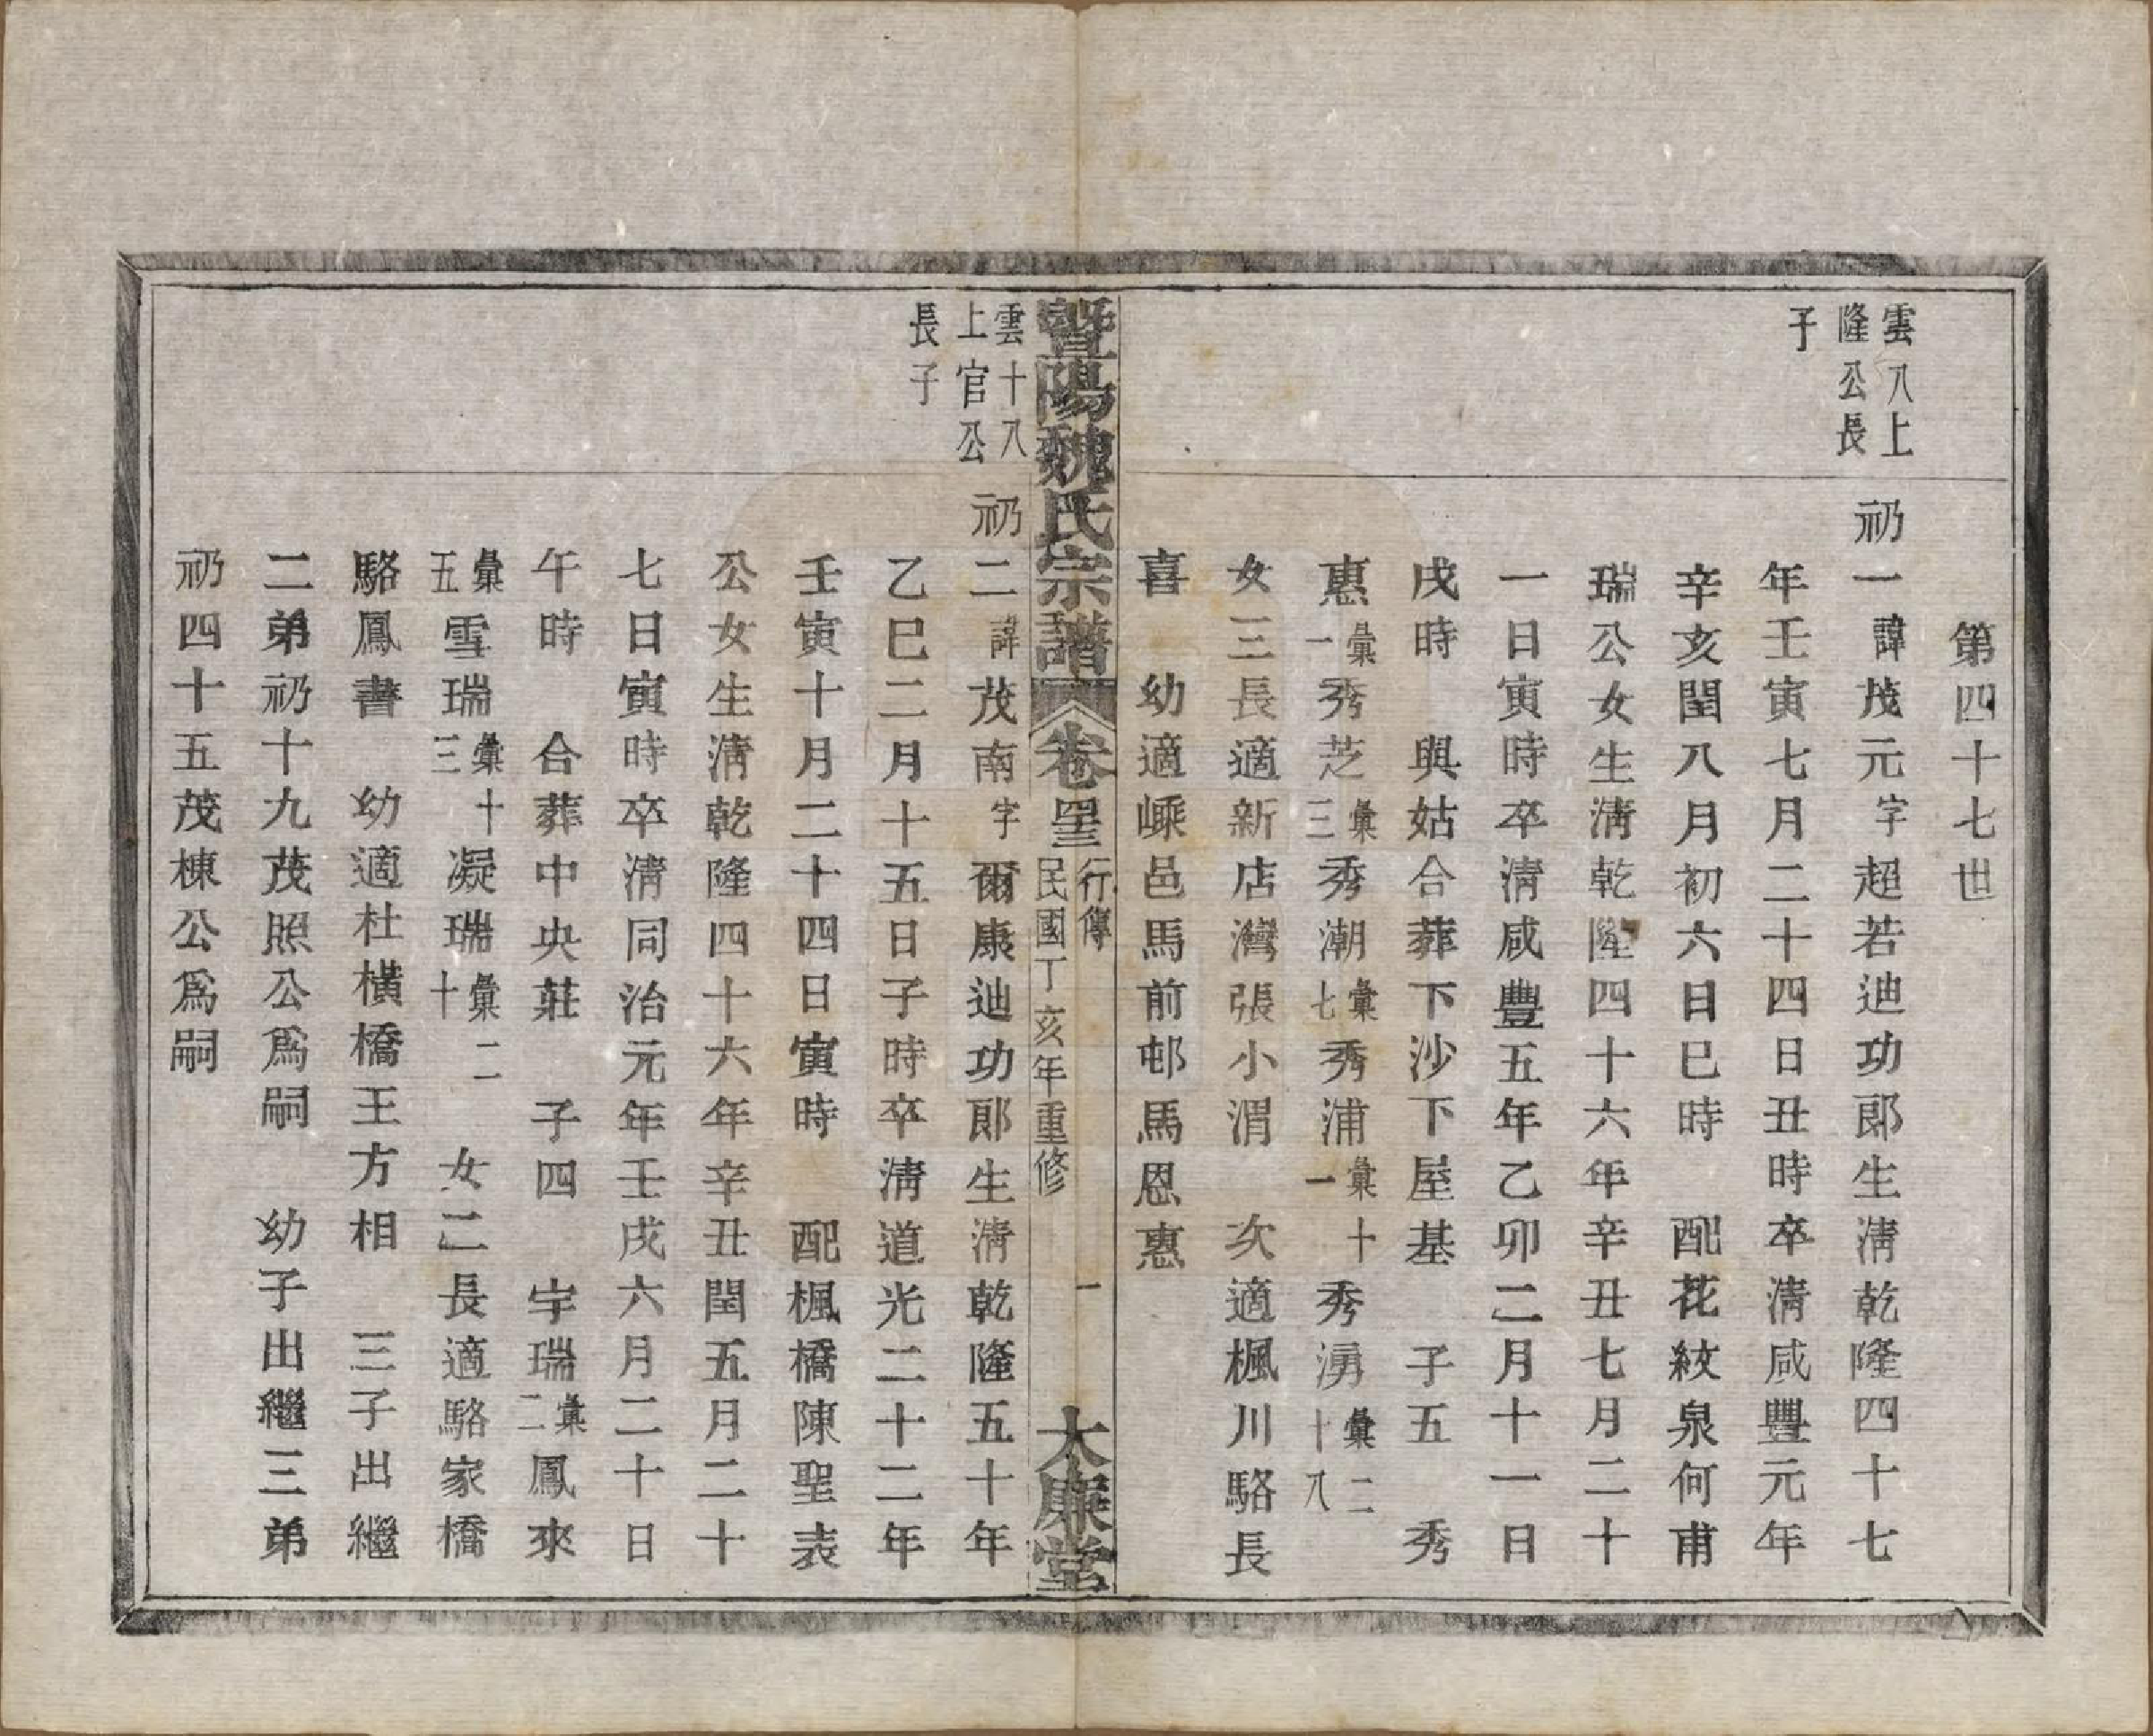 第四十七世
雲八上
隆公長
子
礽一諱茂元字超若迪功郎生淸乾隆四十七
年壬寅七月二十四日丑時卒淸咸豐元年
辛亥閏八月初六日巳時　配花紋泉何甫
瑞公女生淸乾隆四十六年辛丑七月二十
一日寅時卒淸咸豐五年乙卯二月十一日
戌時　與姑合葬下沙下屋基　子五　秀
惠彙一秀芝彙三秀潮彙七秀浦彙十一秀湧彙二十八
女三長適新店灣張小渭　次適楓川駱長
喜　幼適嵊邑馬前邨馬恩惠
暨陽魏氏宗譜　卷　行傳　民國丁亥年重修　一　大廉堂
雲十八
上官公
長子
礽二諱茂南字爾康迪功郎生淸乾隆五十年
乙巳二月十五日子時卒淸道光二十二年
壬寅十月二十四日寅時　配楓橋陳聖表
公女生淸乾隆四十六年辛丑閏五月二十
七日寅時卒淸同治元年壬戌六月二十日
午時　合葬中央莊　子四　宇瑞彙二鳳來
彙五雪瑞彙十三凝瑞彙二十　女二長適駱家橋
駱鳳書　幼適杜橫橋王方相　三子出繼
二弟礽十九茂照公爲嗣　幼子出繼三弟
礽四十五茂棟公爲嗣